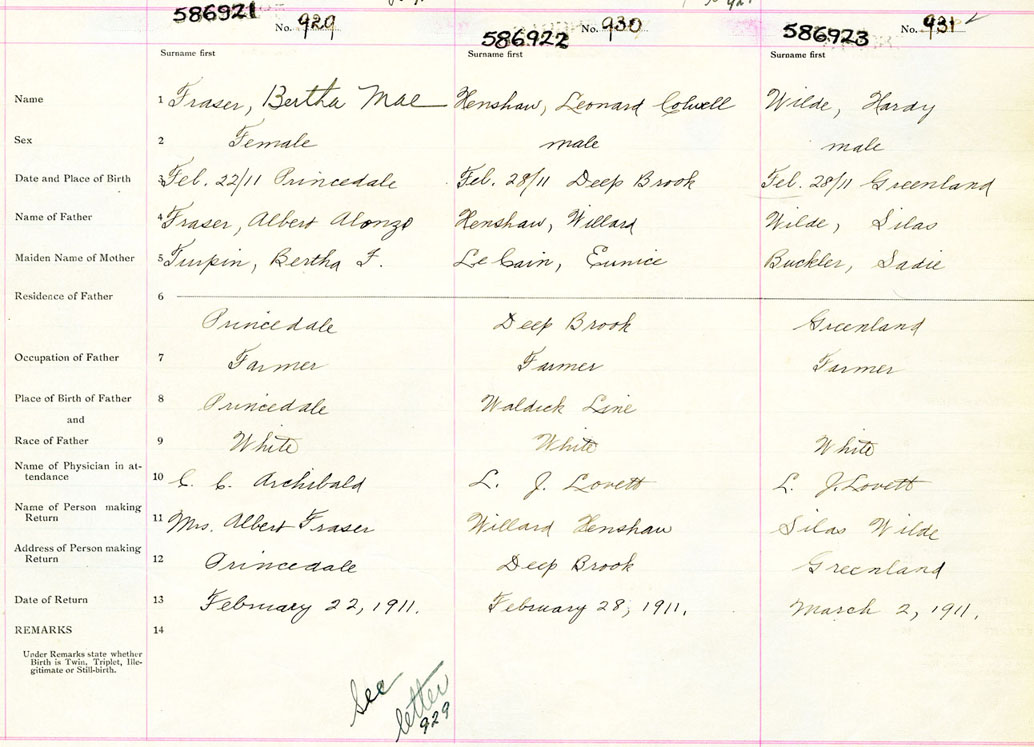 586921 No. 929 586922 No. 930 586923 No. 931
Surname first Surname first Surname first
Name 1 Fraser, Bertha Mae Henshaw, Leonard Colwell Wilde, Hardy
Sex 2 Female male male
Date and Place of Birth 3 Feb. 22/11 Princedale Feb. 28/11 Deep Brook Feb. 28/11 Greenland
Name of Father 4 Fraser, Albert Alonzo Henshaw, Willard Wilde, Silas
Maiden Name of Mother 5 Turpin, Bertha F. Le Cain, Eunice Buckler, Sadie
Residence of Father 6
Princedale Deep Brook Greenland
Occupation of Father 7 Farmer Farmer Farmer
Place of Birth of Father 8 Princedale Waldick Line
and
Race of Father 9 White White White
Name of Physician in at-
tendance 10 C. C. Archibald L. J. Lovett L. J. Lovett
Name of Person making
Return 11 Mrs. Albert Fraser Willard Henshaw Silas Wilde
Address of Person making
Return 12 Princedale Deep Brook Greenland
Date of Return 13 February 22, 1911. February 28, 1911. March 2, 1911.
REMARKS 14
Under Remarks state whether
Birth is Twin, Triplet, Ille-
gitimate or Still-birth.
See
letter
929